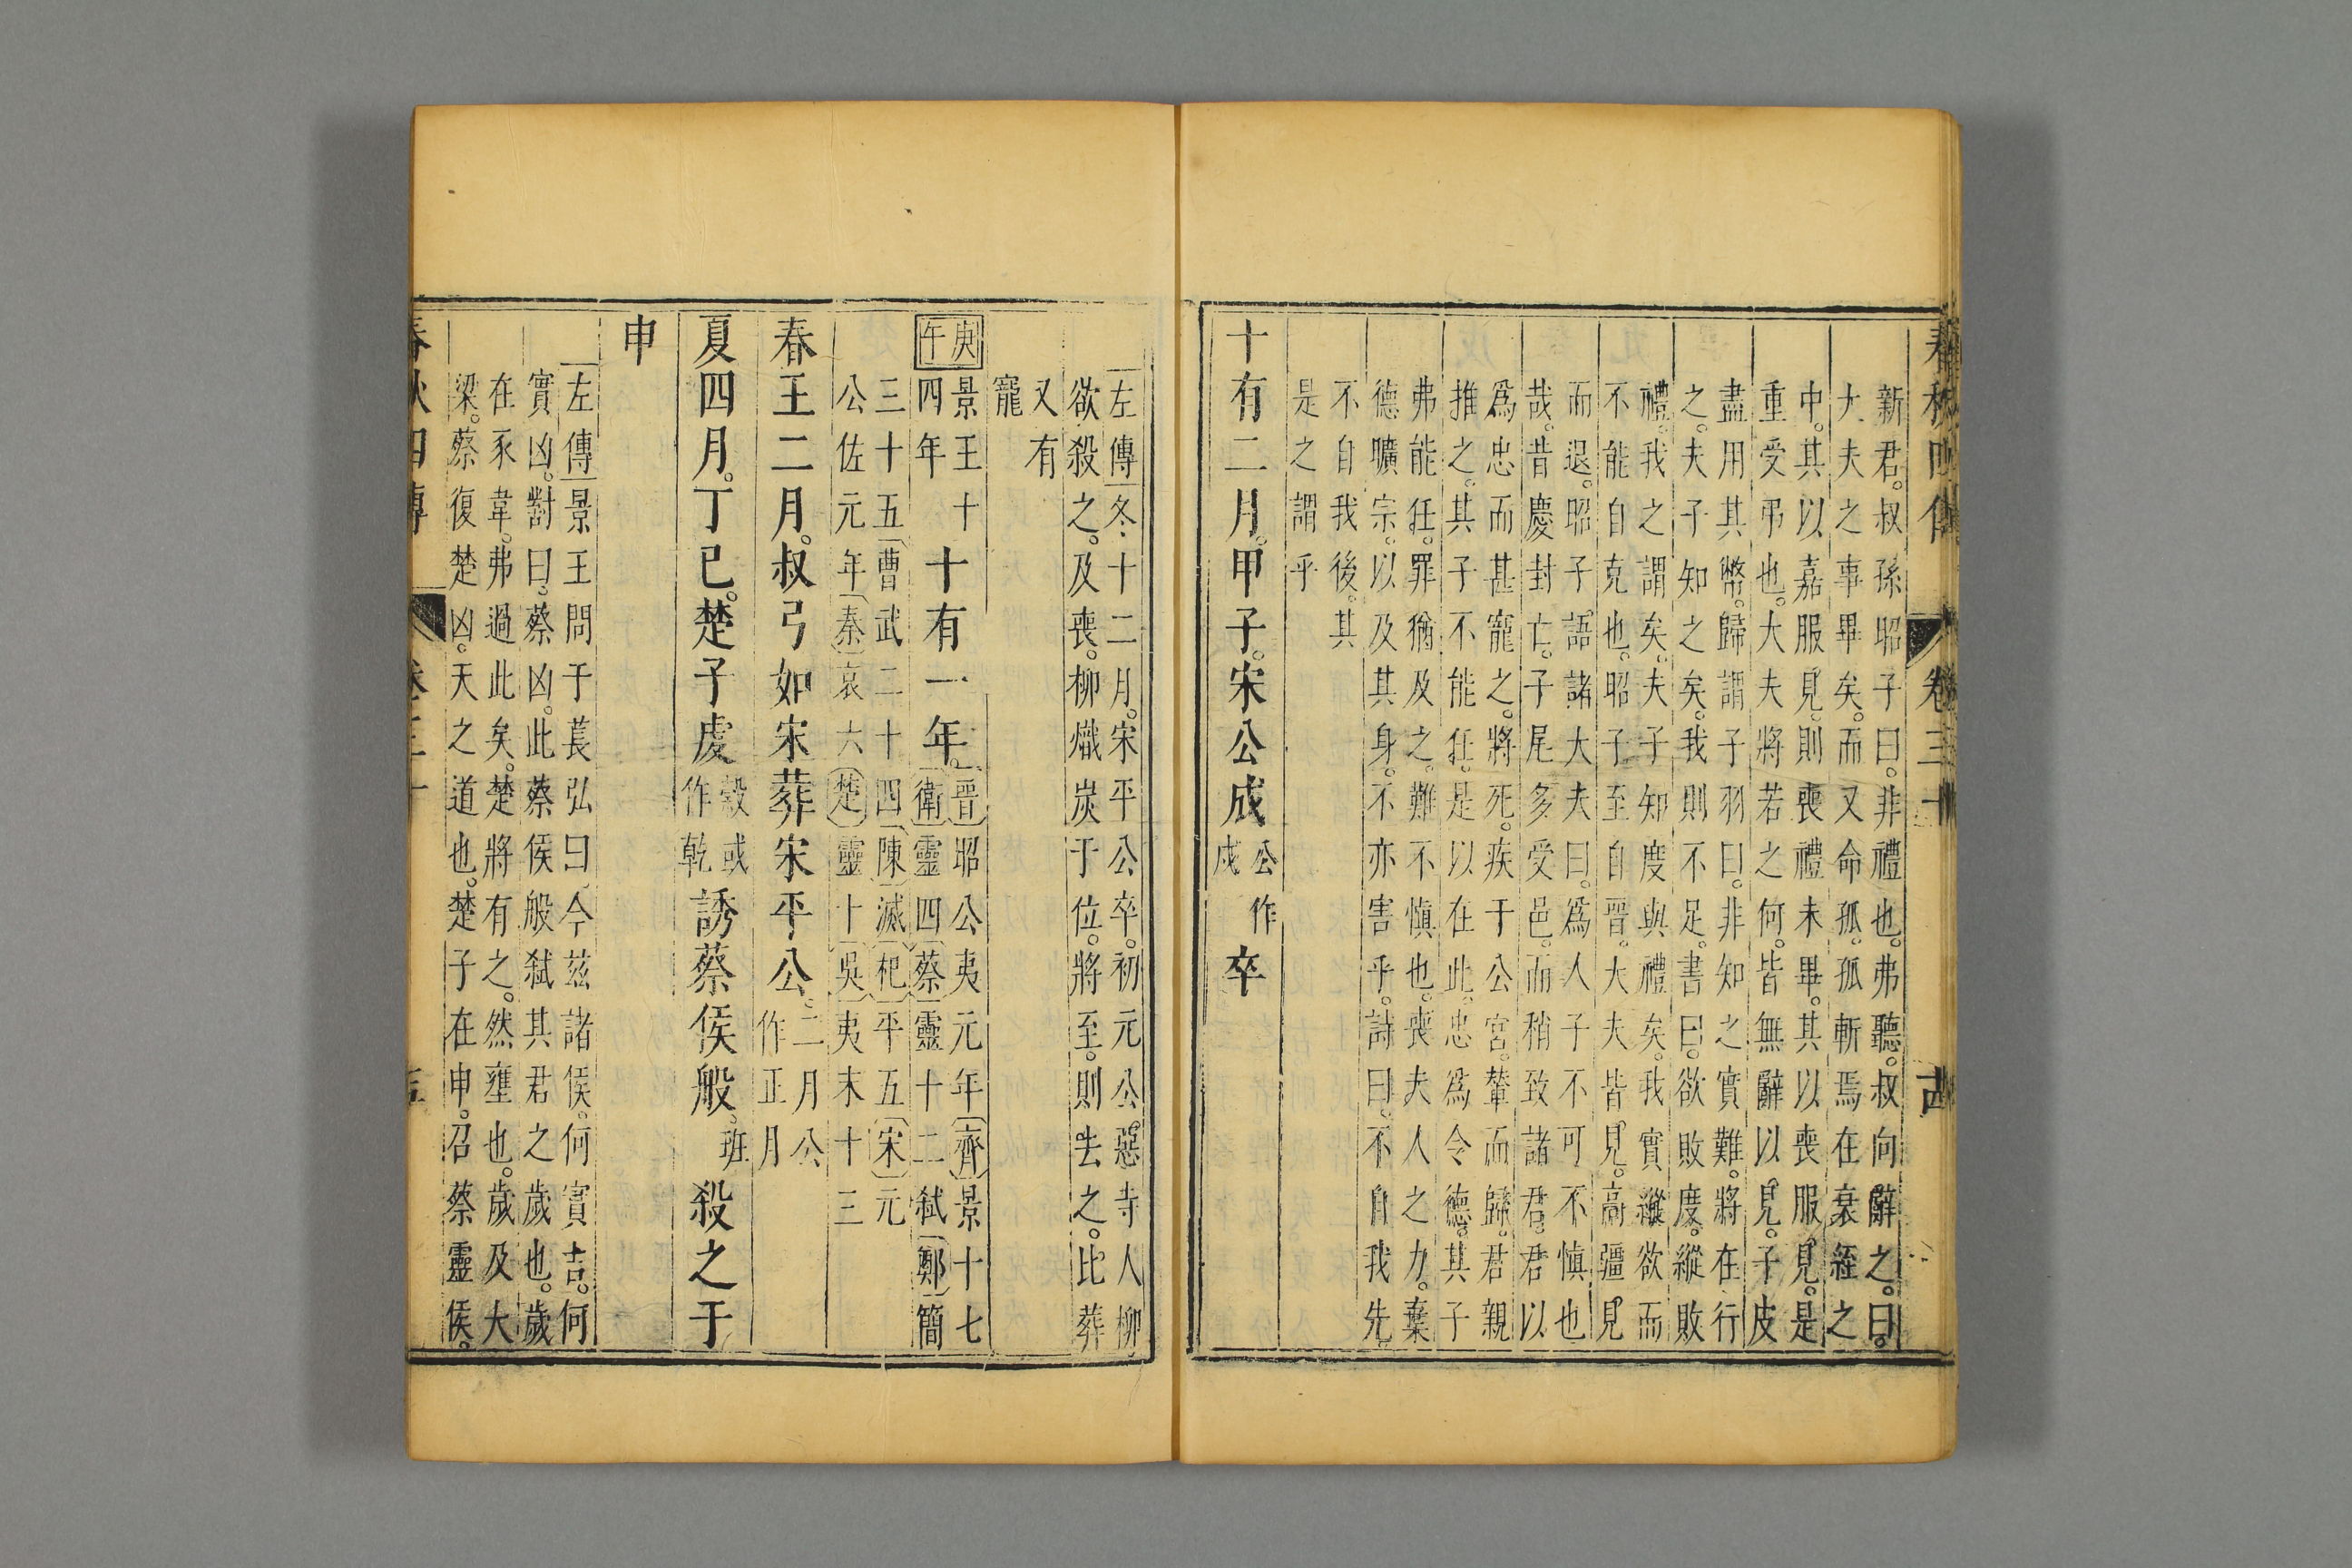 春秋四傳 卷三十 古
新君。叔孫昭子曰。非禮也。弗聽。叔向辭之。曰。
大夫之事畢矣。而又命孤。孤斬焉在衰絰之
中。其以嘉服見。則喪禮未畢。其以喪服見。是
重受弔也。大夫將若之何。皆無辭以見。子皮
盡用其幣。歸謂子羽曰。非知之實難。將在行
之。夫子知之矣。我則不足。書曰。欲敗度。縱敗
禮。我之謂矣。夫子知度與禮矣。我實縱欲而
不能自克也。昭子至自晉。大夫皆見。高彊見
而退。昭子語諸大夫曰。為人子不可不慎也
哉。昔慶封亡。子尾多受邑。而稍致諸君。君以
為忠而甚寵之。將死。疾于公宮。輦而歸。君親
推之。其子不能任。是以在此。忠為令德。其子
弗能任。罪猶及之。難不慎也。喪夫人之力。棄
德曠宗。以及其身。不亦害乎。詩曰。不自我先。
不自我後。其
是之謂乎
十有二月。甲子。宋公成公作戌卒
左傳冬十二月。宋平公卒。初元公惡寺人柳。
欲殺之。及喪。柳熾炭于位。將至。則去之。比葬
又有
寵
庚午 景王十四年 十有一年。晉昭公夷元年齊景十七
衛靈四蔡靈十二弑鄭簡
三十五曹武二十四陳滅杞平五宋元
公佐元年秦哀六楚靈十吳夷末十三
春王二月。叔弓如宋葬宋平公。二月公作正月
夏四月。丁巳。楚子虔榖或作乾誘蔡侯般。班殺之于
申
左傳景王問于萇弘曰。今茲諸侯。何實吉。何
實凶。對曰。蔡凶。此蔡侯般弑其君之歲也。歲
在豕韋。弗過此矣。楚將有之。然壅也。歲及大
梁。蔡復楚凶。天之道也。楚子在申。召蔡靈侯。
春秋四傳 卷三十